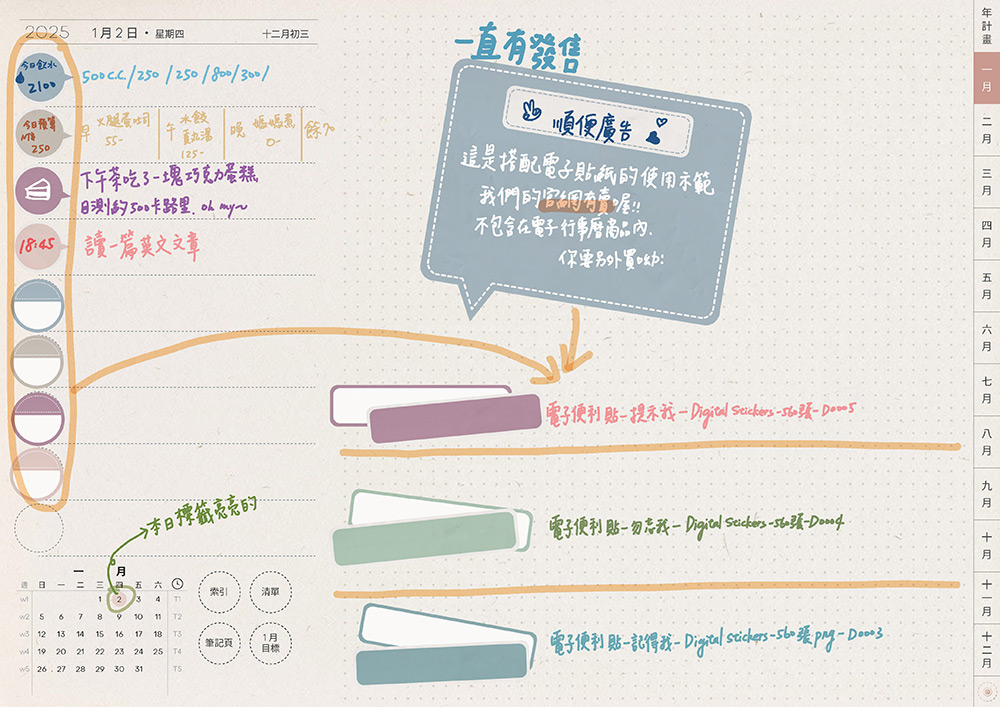 2025 1月2日・星期四 十二月初三
今日飲水
2100
500c.c./250 /250/800/300/
今日預算
NT$
250
早 火腿蛋吐司
55-
午 水餃
酸辣湯
125-
晚 媽媽煮
0-
餘70
下午茶吃了一塊巧克力蛋糕
目測約500卡路里. oh my~
18:45
讀一篇英文文章
本日標籤亮亮的
一月
週 日 一 二 三 四 五 六
W1 1 2 3 4 T1
W2 5 6 7 8 9 10 11 T2
W3 12 13 14 15 16 17 18 T3
W4 19 20 21 22 23 24 25 T4
W5 26 27 28 29 30 31 T5
索引
清單
筆記頁
1月
目標
一直有發售
順便廣告
這是搭配電子貼紙的使用示範
我們的官網有賣喔!!
不包含在電子行事曆商品內.
你要另外買呦:
電子便利貼-提示我-Digital Stickers-560張-D0005
電子便利貼-勿忘我-Digital Stickers-560張-D0004
電子便利貼-記得我-Digital Stickers-560張png-D0003
年計畫
一月
二月
三月
四月
五月
六月
七月
八月
九月
十月
十一月
十二月